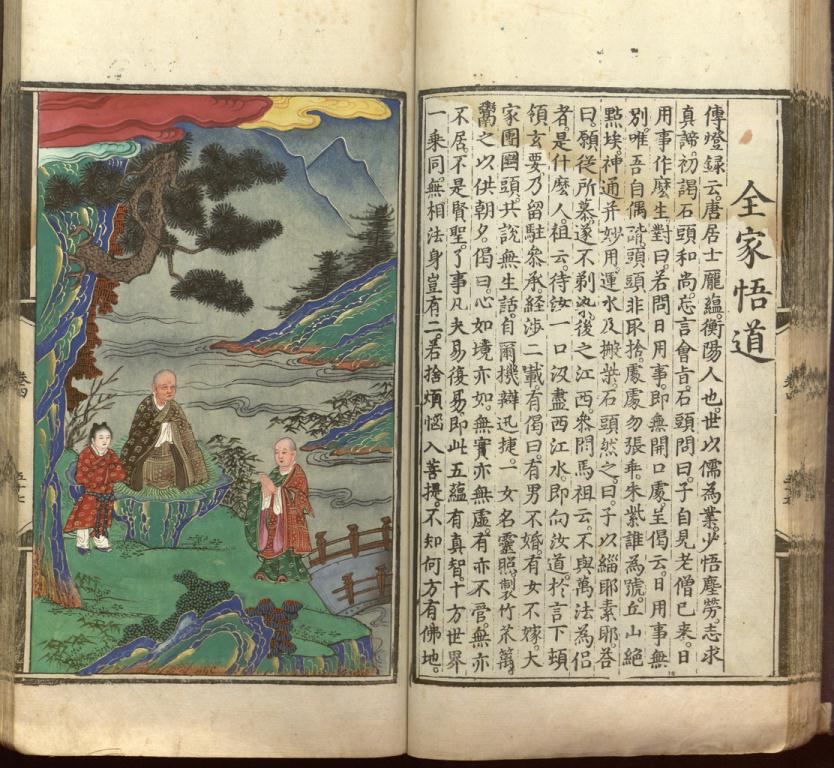 全家悟道
傳燈録云。唐居士龐蘊。衡陽人也。世以儒為業。少悟塵勞。志求
真諦。初謁石頭和尚。忘言會旨。石頭問曰。子自見老僧已来。日
用事作麼生。對曰。若問日用事。即無開口處。呈偈云。日用事無
別。唯吾自偶諧。頭頭非取捨。處處勿張乖。朱紫誰為號。丘山絶
點埃。神通并妙用。運水及搬柴。石頭然之曰。子以緇耶素耶。荅
曰。願從所慕。遂不剃染。後之江西。叅問馬祖云。不與萬法為侣
者。是什麼人。祖云。待汝一口汲盡西江水。即向汝道。於言下頓
領玄要。乃留駐叅承。經涉二載。有偈曰。有男不婚。有女不嫁。大
家團圞頭。共說無生話。自爾機辯迅捷。一女名靈照。製竹笊籬。
鬻之以供朝夕。偈曰。心如境亦如。無實亦無虚。有亦不管。無亦
不居。不是賢聖。了事凡夫。易復易。即此五蘊有真智。十方世界
一乘同。無相法身豈有二。若捨煩惱入菩提。不知何方有佛地。
卷四